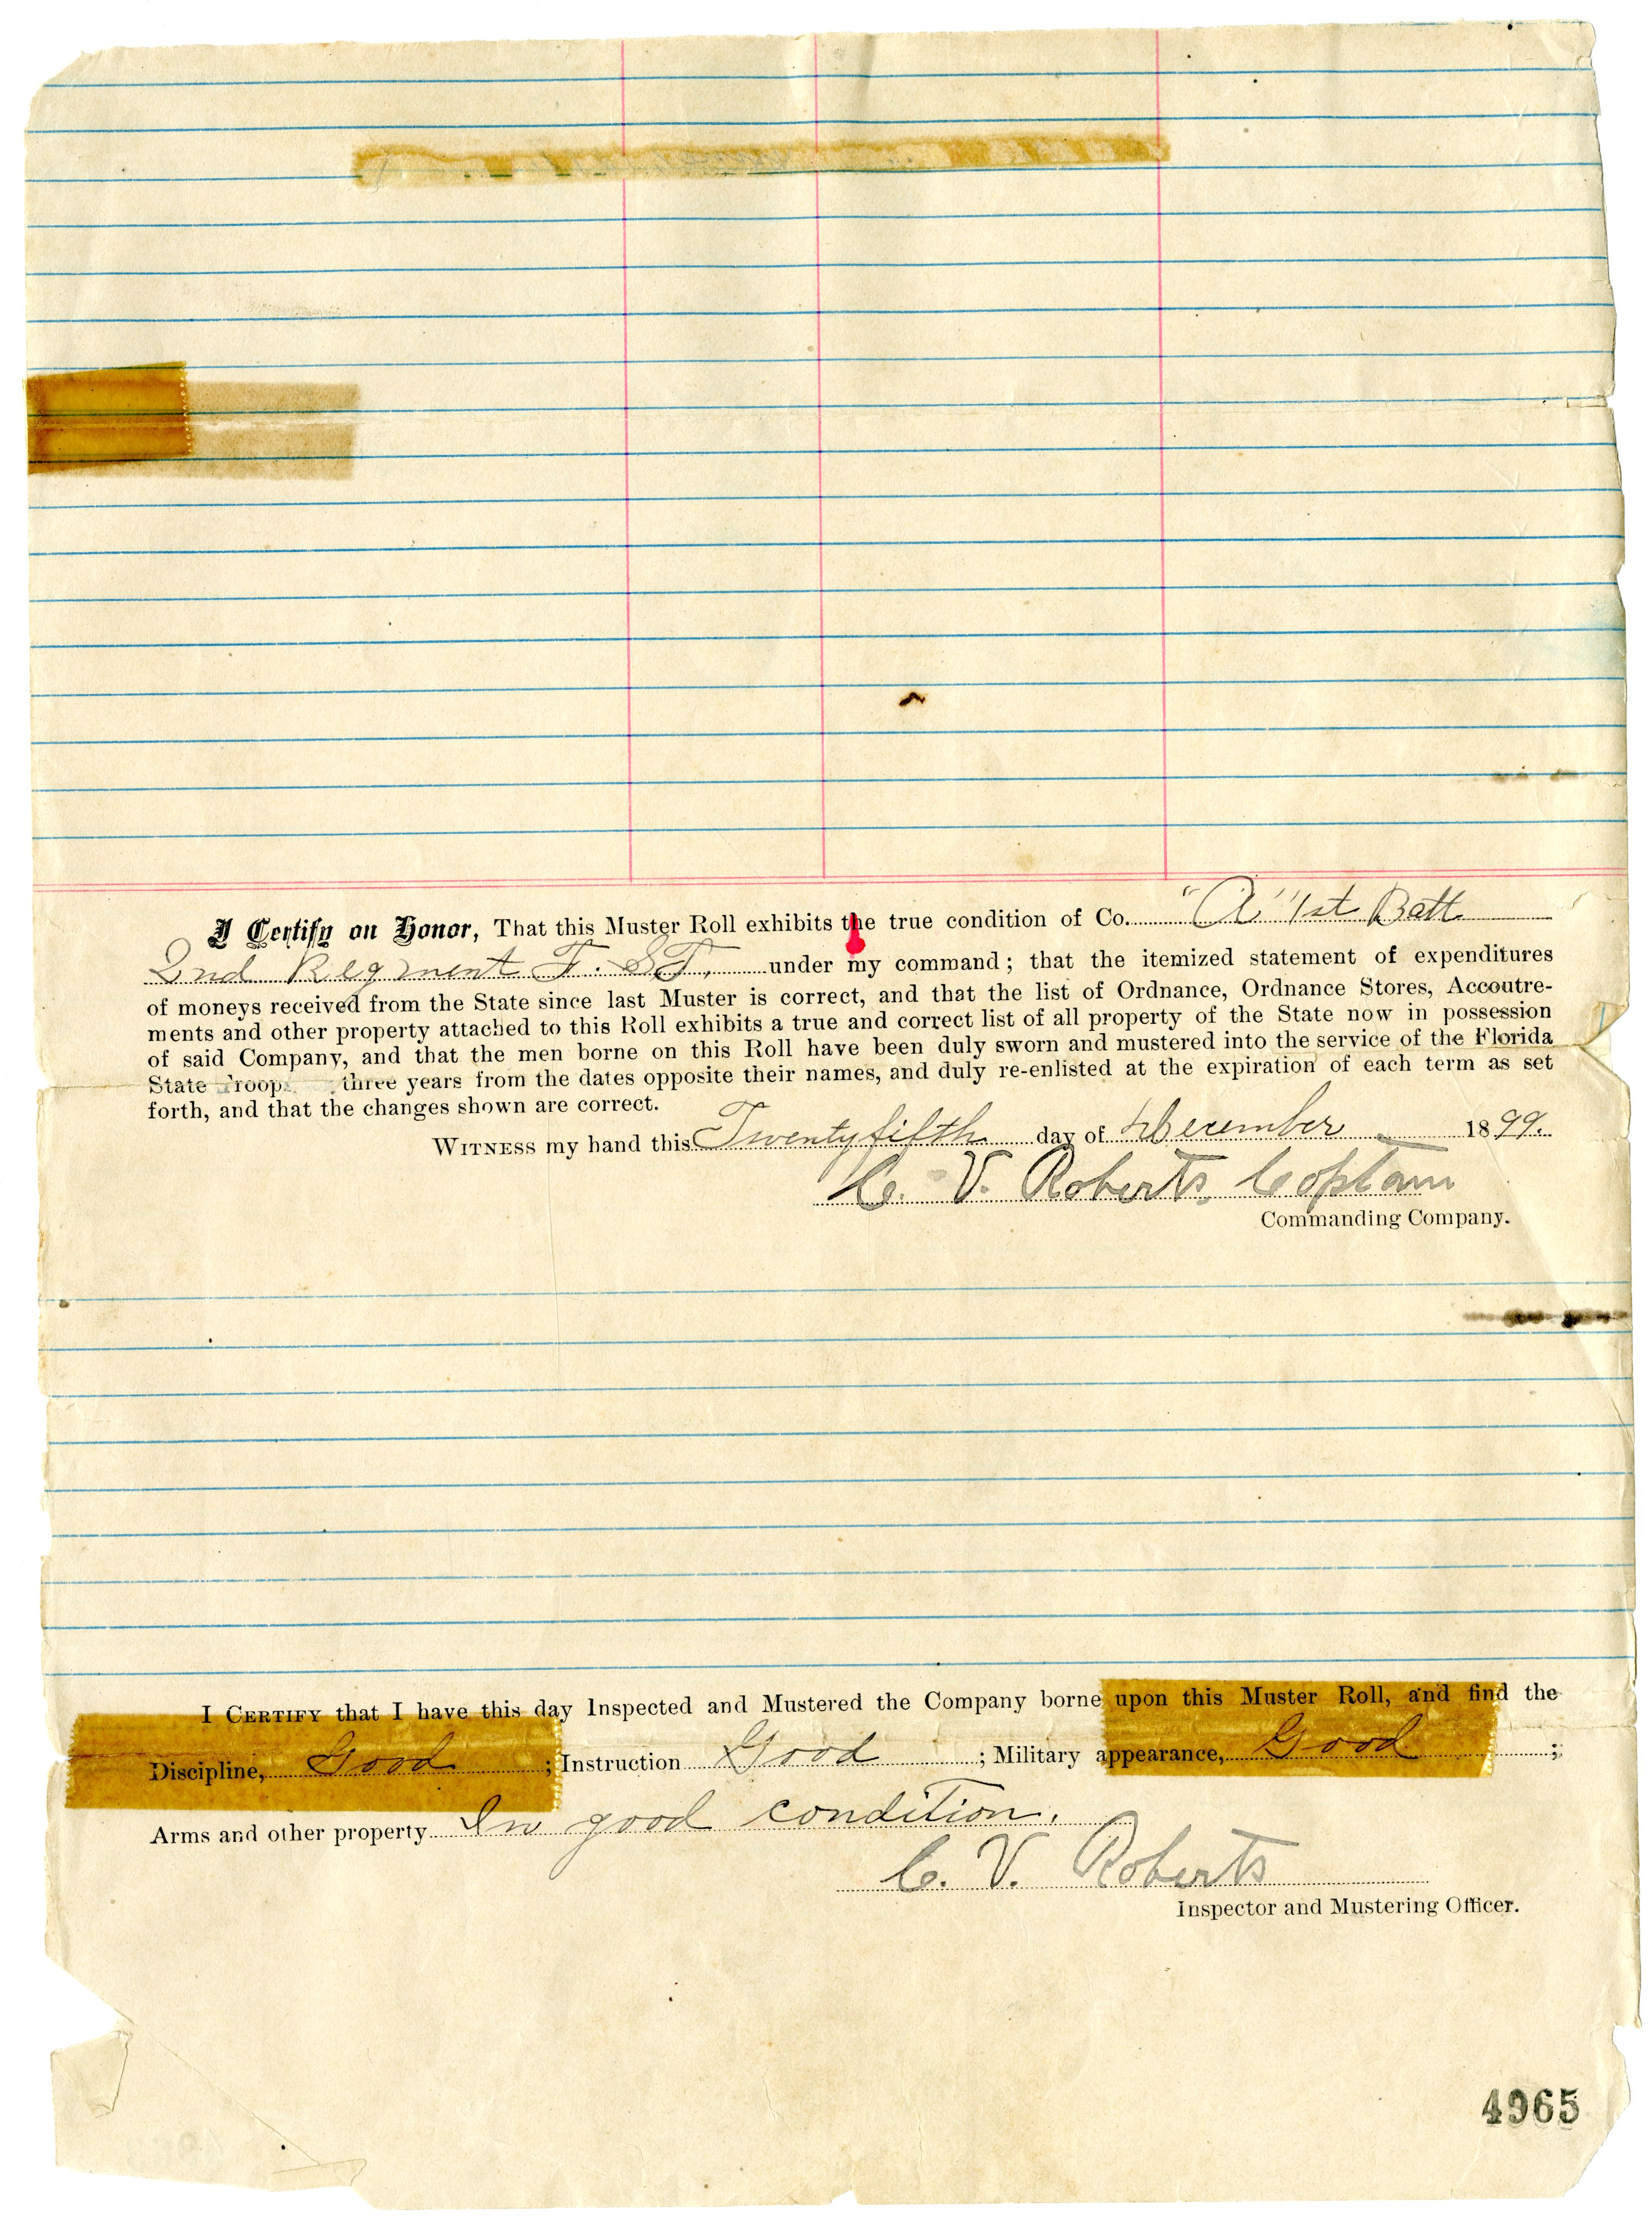 I Certify on Honor, That this Muster Roll exhibits the true condition of Co. "A" 1st Batt
2nd Regment F. S.T. under my command; that the itemized statement of expenditures
of moneys received from the State since last Muster is correct, and that the list of Ordnance, Ordnance Stores, Accoutre-
ments and other property attached to this Roll exhibits a true and correct list of all property of the State now in possession
of said Company, and that the men borne on this Roll have been duly sworn and mustered into the service of the Florida
State Troop three years from the dates opposite their names, and duly re-enlisted at the expiration of each term as set
forth, and that the changes shown are correct.
WITNESS my hand this Twentyfifth day of December 1899.
C. V. Roberts Captain
Commanding Company.
I CERTIFY that I have this day Inspected and Mustered the Company borne upon this Muster Roll, and find the
Discipline, Good ; Instruction Good ; Military appearance, Good ;
Arms and other property In good condition.
C. V. Roberts
Inspector and Mustering Officer.
4965